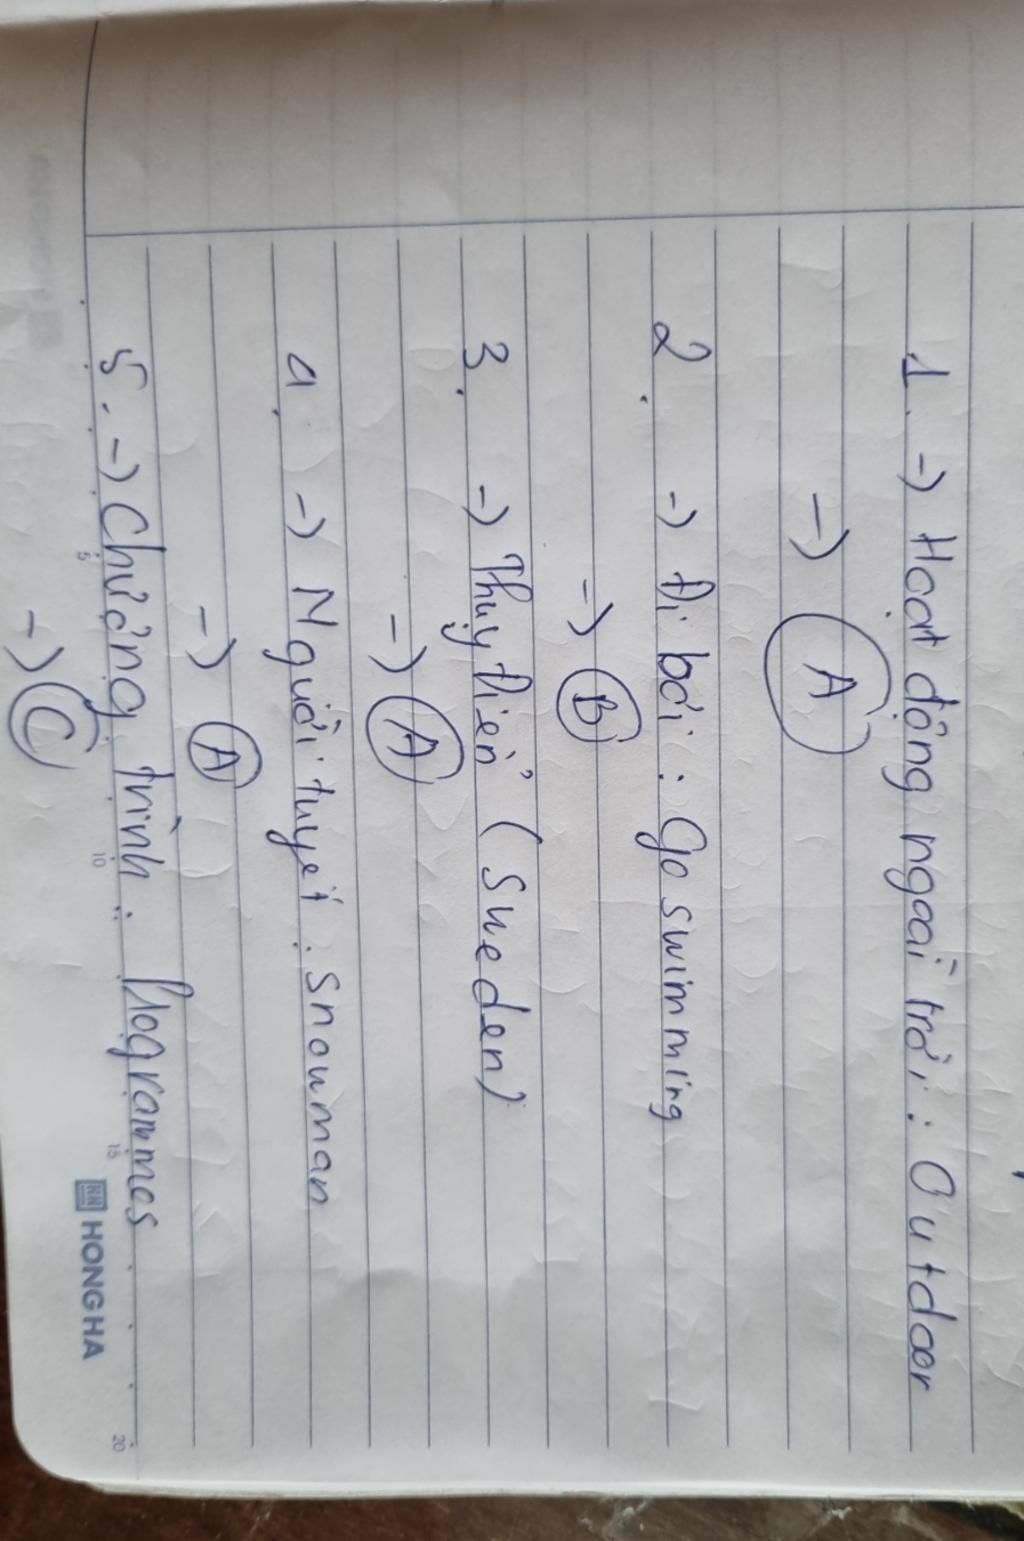 1. -> Hoạt động ngoài trời : Outdoor
-> A
2. -> Đi bơi : Go swimming
-> B
3. -> Thụy Điển (Sweden)
-> A
4. -> Người tuyết : Snowman
-> A
5. -> Chương trình : Programmes
-> C
5 10 15 20
HH HONG HA